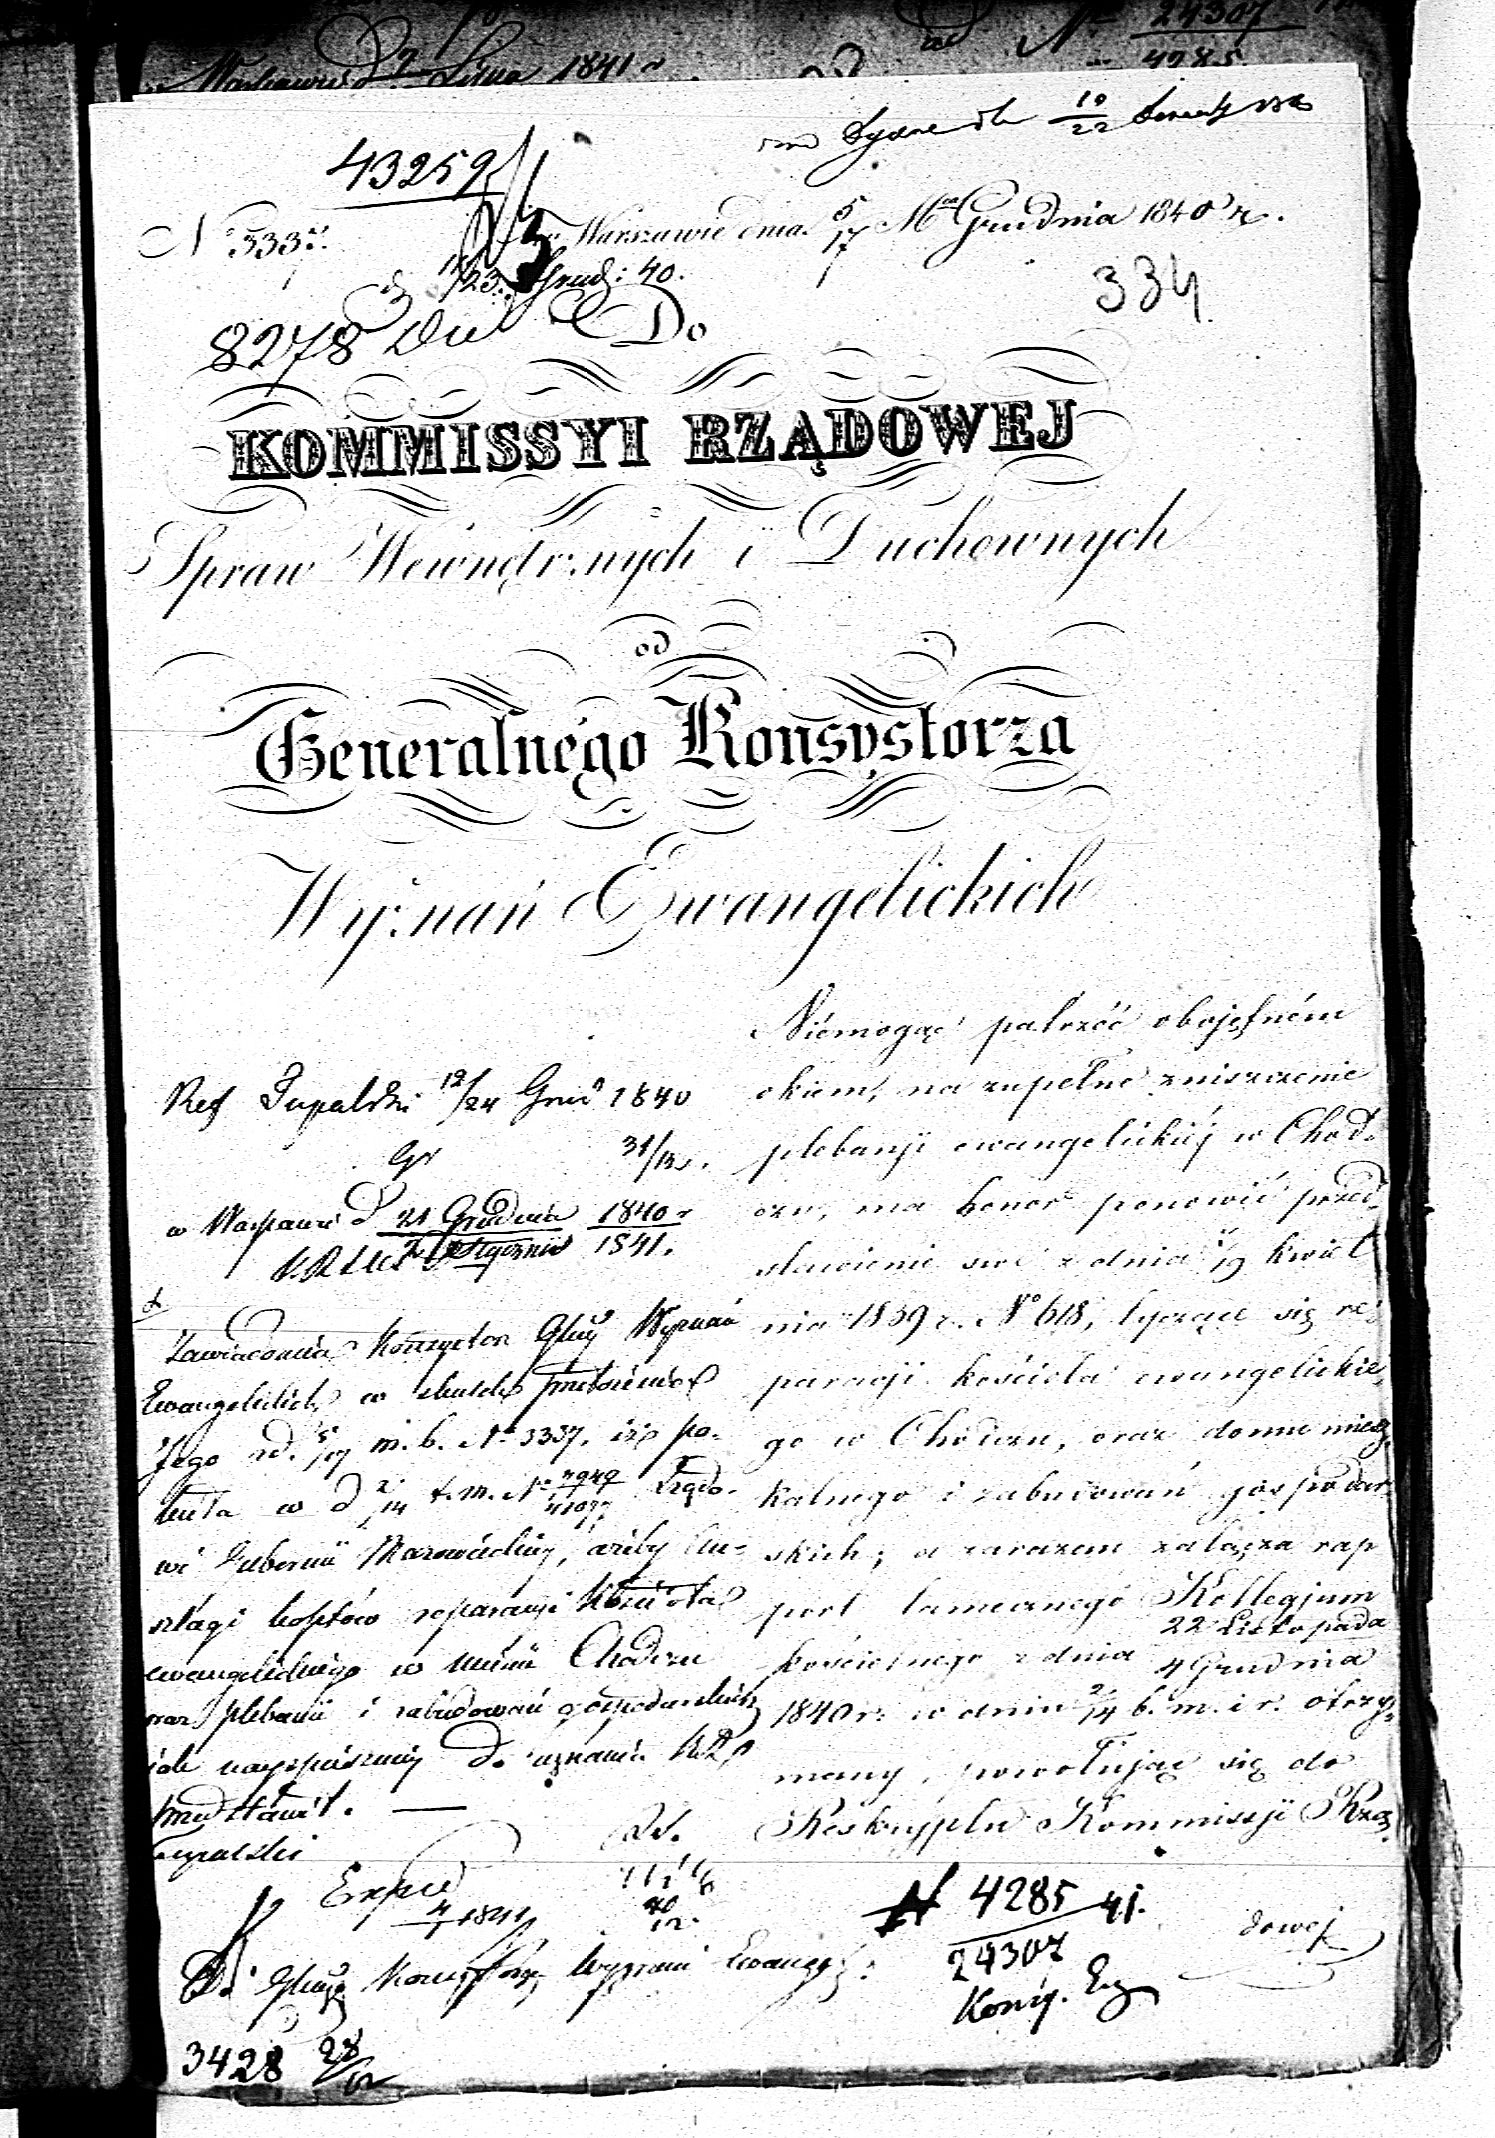 24307
4285
1841 r
10
22
43259
Nº 3337.
w Warszawie dnia 5/17 Mca Grudnia 1840 r.
23 Grud: 40.
334
8278
Do
KOMMISSYI RZĄDOWEJ
Spraw Wewnętrznych i Duchownych
od
Generalnego Konsystorza
Wyznań Ewangelickich
Niemogąc patrzéć obojętném
okiem, na zupełne zniszczenie
plebanji ewangelickiéj w Chod-
czu, ma honor ponowić przed-
stawienie swe z dnia 7/19 kwiet
nia 1839 r. Nº 618, tyczące się re-
paracji kościoła ewangelickie-
go w Chodczu, oraz domu miesz-
kalnego i zabudowań gospodar-
skich; a zarazem załącza rap
port tamecznego Kollegjum
kościelnego z dnia 22 Listopada
4 Grudnia
1840 r. w dniu 2/14 b. m. i r. otrzy-
many, powołując się do
Reskryptu Kommissji Rzą-
dowej
Ref 12/24 Grud 1840
w Warszawie d 21 Grudnia 1840 r
2 Stycznia 1841.
Zawiadamia Konsystorz Głny Wyznań
Ewangelickich w skutek przełożenia
Jego z d. 5/17 m. b. Nº 3337, iż po-
w d 2/14 t. m. Nº
wi Gubernii Mazowieckiéj, ażeby An-
szlagi kosztów reparacyi Kościoła
ewangelickiego w mieście Chodczu
oraz plebanii i zabudowań gospodarskich
jak najspieszniéj do uznania
przedstawił. —
Exped
1841
Do Głngo Konsystorza Wyznań Ewangel:
N 4285 41.
24307
3428 28